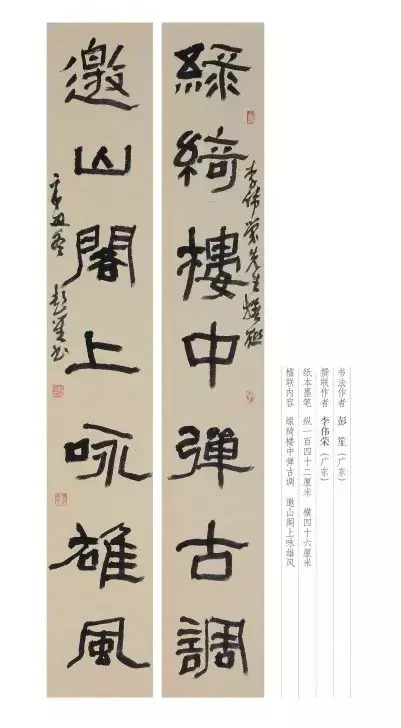 綠綺樓中彈古調
李伟荣先生撰联
邀山閣上咏雄風
辛丑冬 彭笙书
书法作者 彭笙（广东）
撰联作者 李伟荣（广东）
纸本墨笔 纵一百四十二厘米 横四十六厘米
楹联内容 绿绮楼中弹古调 邀山阁上咏雄风